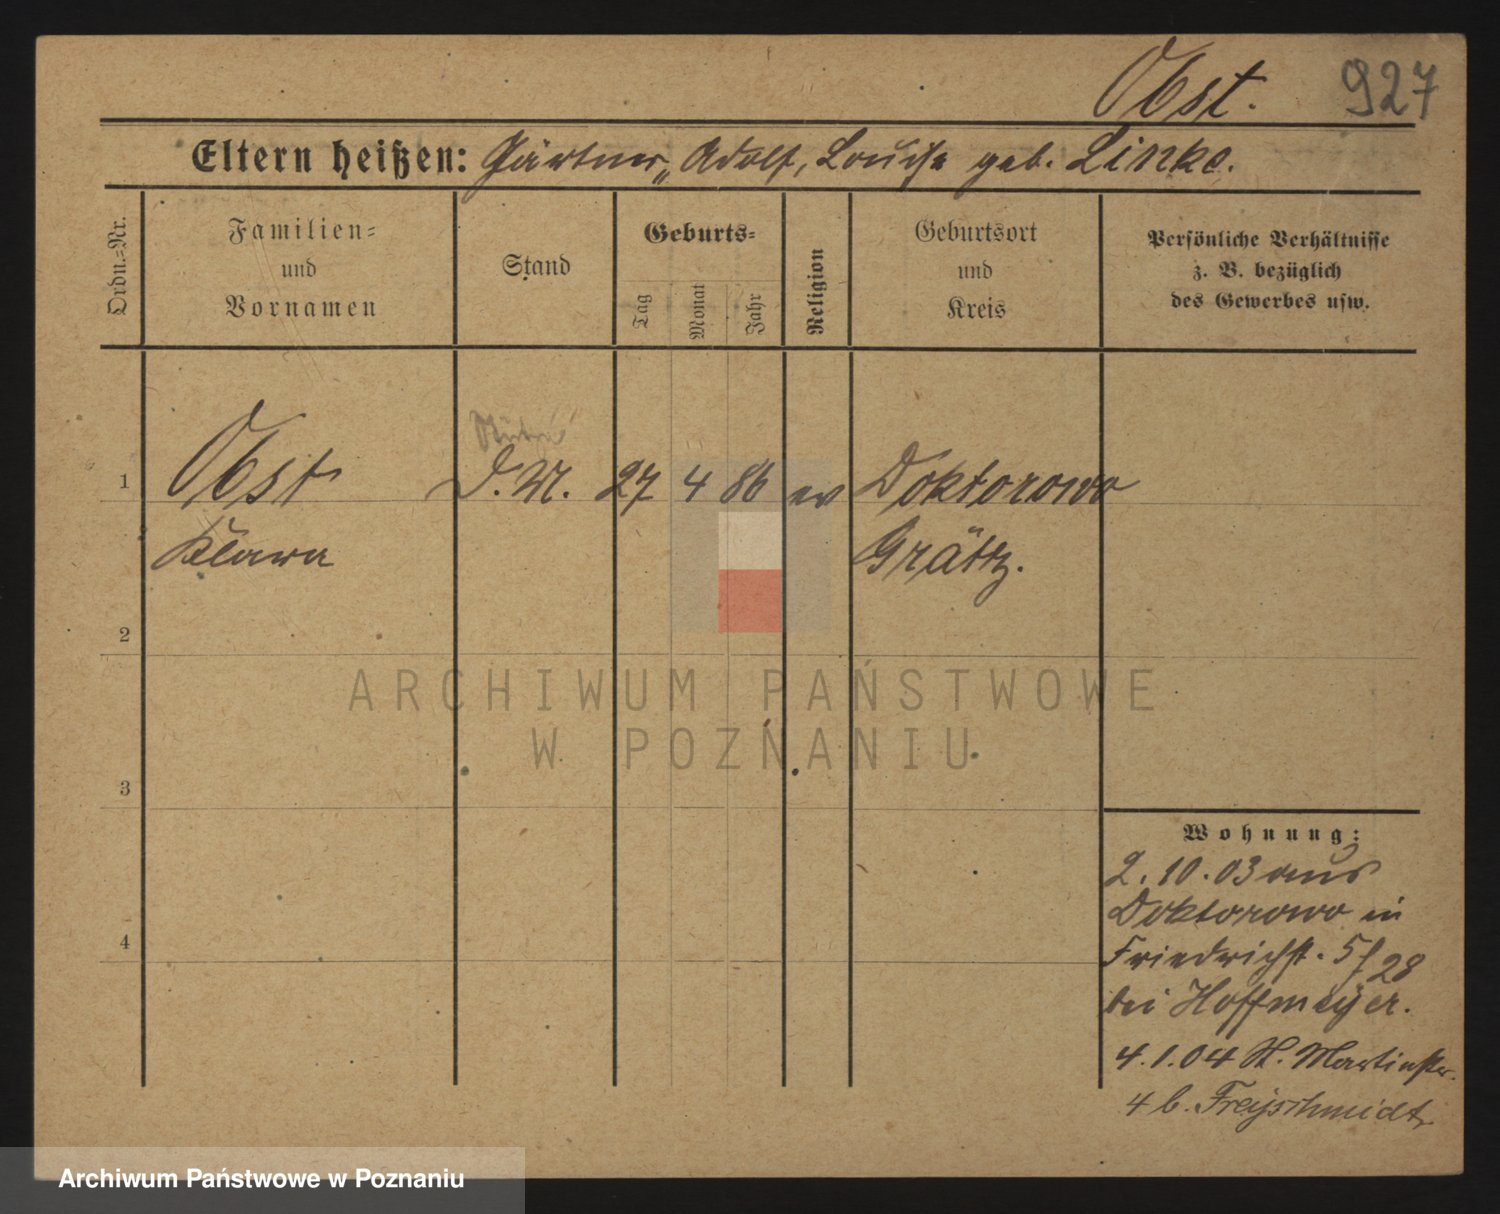 Obst. 927
Eltern heißen: Gärtner, Adolf, Louise geb. Linke.
Ordn.-Nr.
Familien-
und
Vornamen
Stand
Geburts-
Tag
Monat
Jahr
Religion
Geburtsort
und
Kreis
Persönliche Verhältnisse
z. B. bezüglich
des Gewerbes usw.
1 Obst D. M. 27 4 86 ev Doktorowo
Klara Grätz.
2
ARCHIWUM PAŃSTWOWE
W POZNANIU
3
Wohnung:
2.10.03 aus
Doktorowo in
4
Friedrichst. 5/28
bei Hoffmeyer.
4.1.04 St. Martinstr.
4 b. Freyschmidt
Archiwum Państwowe w Poznaniu